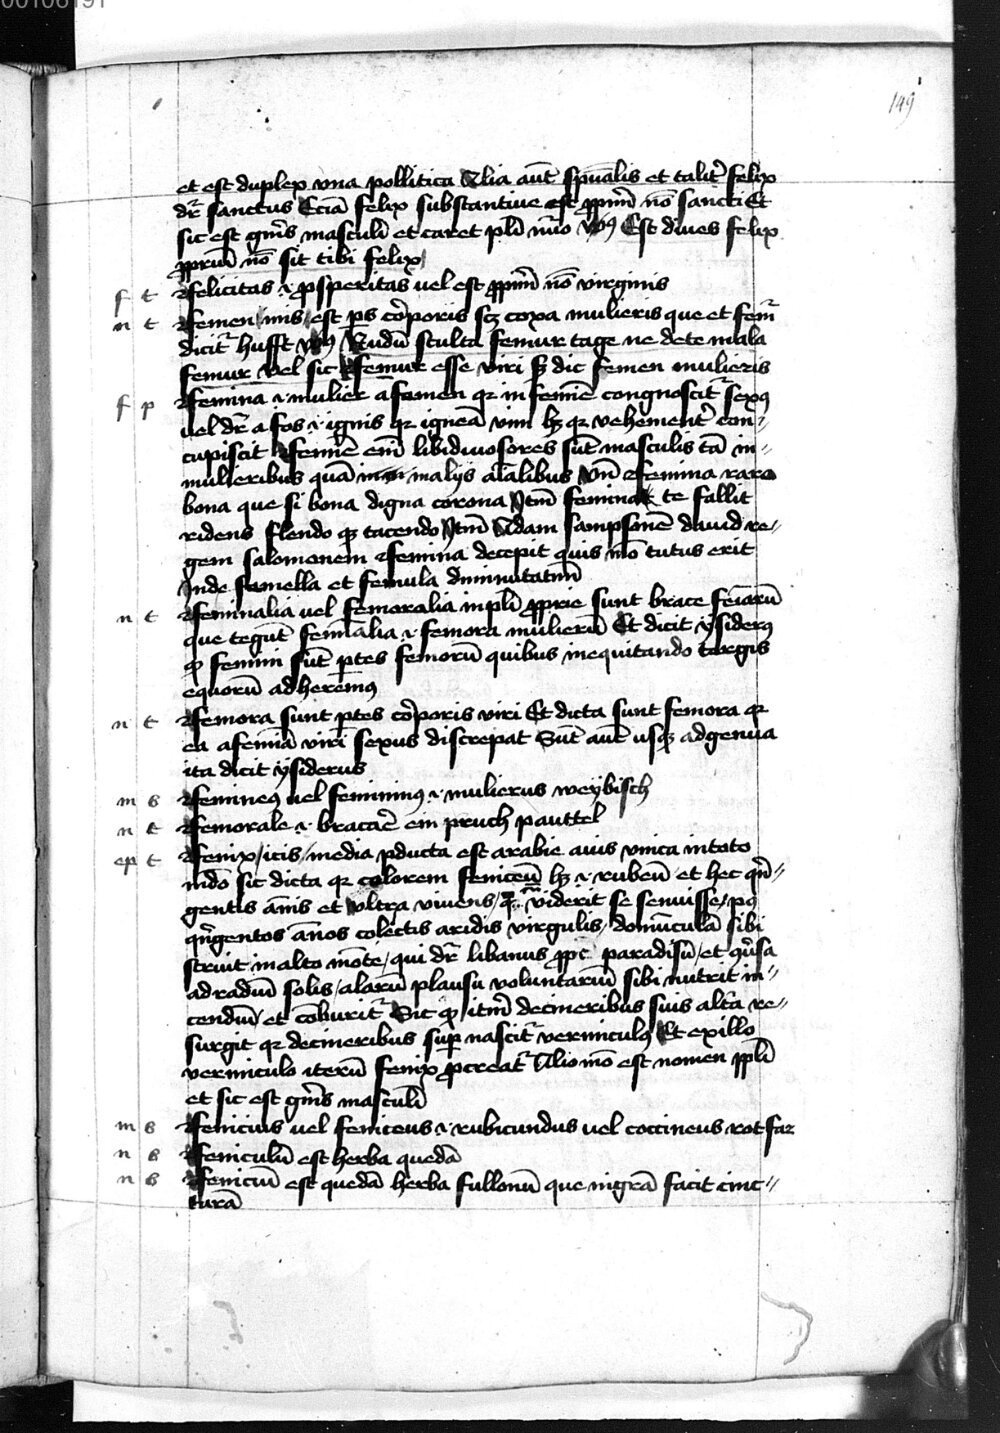 00106191
149
et est duplex vna pollitica Alia aut̄ spūalis et talit̾ felix
dr̄ sanctus Eciā felix substantiue est ꝓpm̄ nō sancti Et
sic est gn̄is masculī et caret pl̄i nūo Est diues felix
ꝓprium nō sit tibi felix
f t felicitas .i. ꝓsperitas uel est ꝓpm̄ nō virginis
n t femen minis est ps cōrporis scꝫ coxa mulieris que et fem̄
dicit̾ hufft Nudū sculta femur tage ne dete mala
femur vel sic femur esse viri sꝫ dic femen mulieris
f p femina .i. mulier a femen qr in femīe congnoscit̾ sexꝯ
uel dr̄ a fos .i. ignis qr igneā vim hꝫ qr vehement̾ con〃
cupiscit femīe em̄ libidinosores sūt masculis tā in〃
mulieribus quā in maliis aīalibus Vn̄ femina raro
bona que si bona digna corona Itm̄ femina te fallit
ridens flendo qꝫ tacendo Itm̄ Adam sampsonē dauid re〃
gem salomonem femina decepit quis mō tutus erit
Inde femella et femula diminutatiū
n t feminalia vel femoralia in pl̄i ꝓprie sunt brace feīarū
que tegūt femīalia .i. femora mulierū Et dicit ysiderꝯ
ꝙ femini sūt ptes femorū quibus in equitando tergis
equorū adheremꝯ
n t femora sunt ptes cōrporis viri Et dicta sunt femora qr
ea a femīa viri sexus discrepat Sūt aut̄ usqꝫ ad genua
ita dicit ysiderus
m s femineꝯ uel femininꝯ .i. mulierus weybisch
n t femorale .i. bracaē ein pruch pauttel
ep t fenix icis media ꝓducta est arabie auis vnica in toto
mdō sic dicta qr colorem feniceū hꝫ .i. rubeū et hec qn̄〃
gentis ānis et vltra viuens viderit se senuisse
qn̄gentos ānos colectis aridis virgulis domūculā sibi
struit in alto mōte qui dr̄ libanus ꝓpe paradisū et qūsa
ad radiū solis alarū plausu voluntariū sibi nutrit in〃
cendiū et cōburit̾ Sic ꝙ itm̄ decineribus suis alt̄a re〃
surgit qr decineribus sup nascit̾ vermiculꝯ Et ex illo
vermiculo iterū fenix ꝓcreat̾ Alio mō est nomen ꝓpl̄i
et sic est gn̄is masculī
m s fenicius uel feniceus .i. rubicundus uel coccineus rotfar
n s feniculū est herba quedā
n s feniciū est quedā herba fullonū que nigrā facit cinc〃
turā